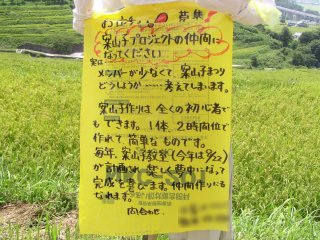 募集
案山子プロジェクトの仲間に
なってください
実は
メンバーが少なくて、案山子まつり
どうしようか……考えてしまいます。
案山子作りは全くの初心者で
もできます。1体、2時間位で
作れて簡単なものです。
毎年、案山子教室(今年は9/22)
が計画され楽しく夢中になって
完成を喜びます。仲間作りにも
なれます。
問合わせ